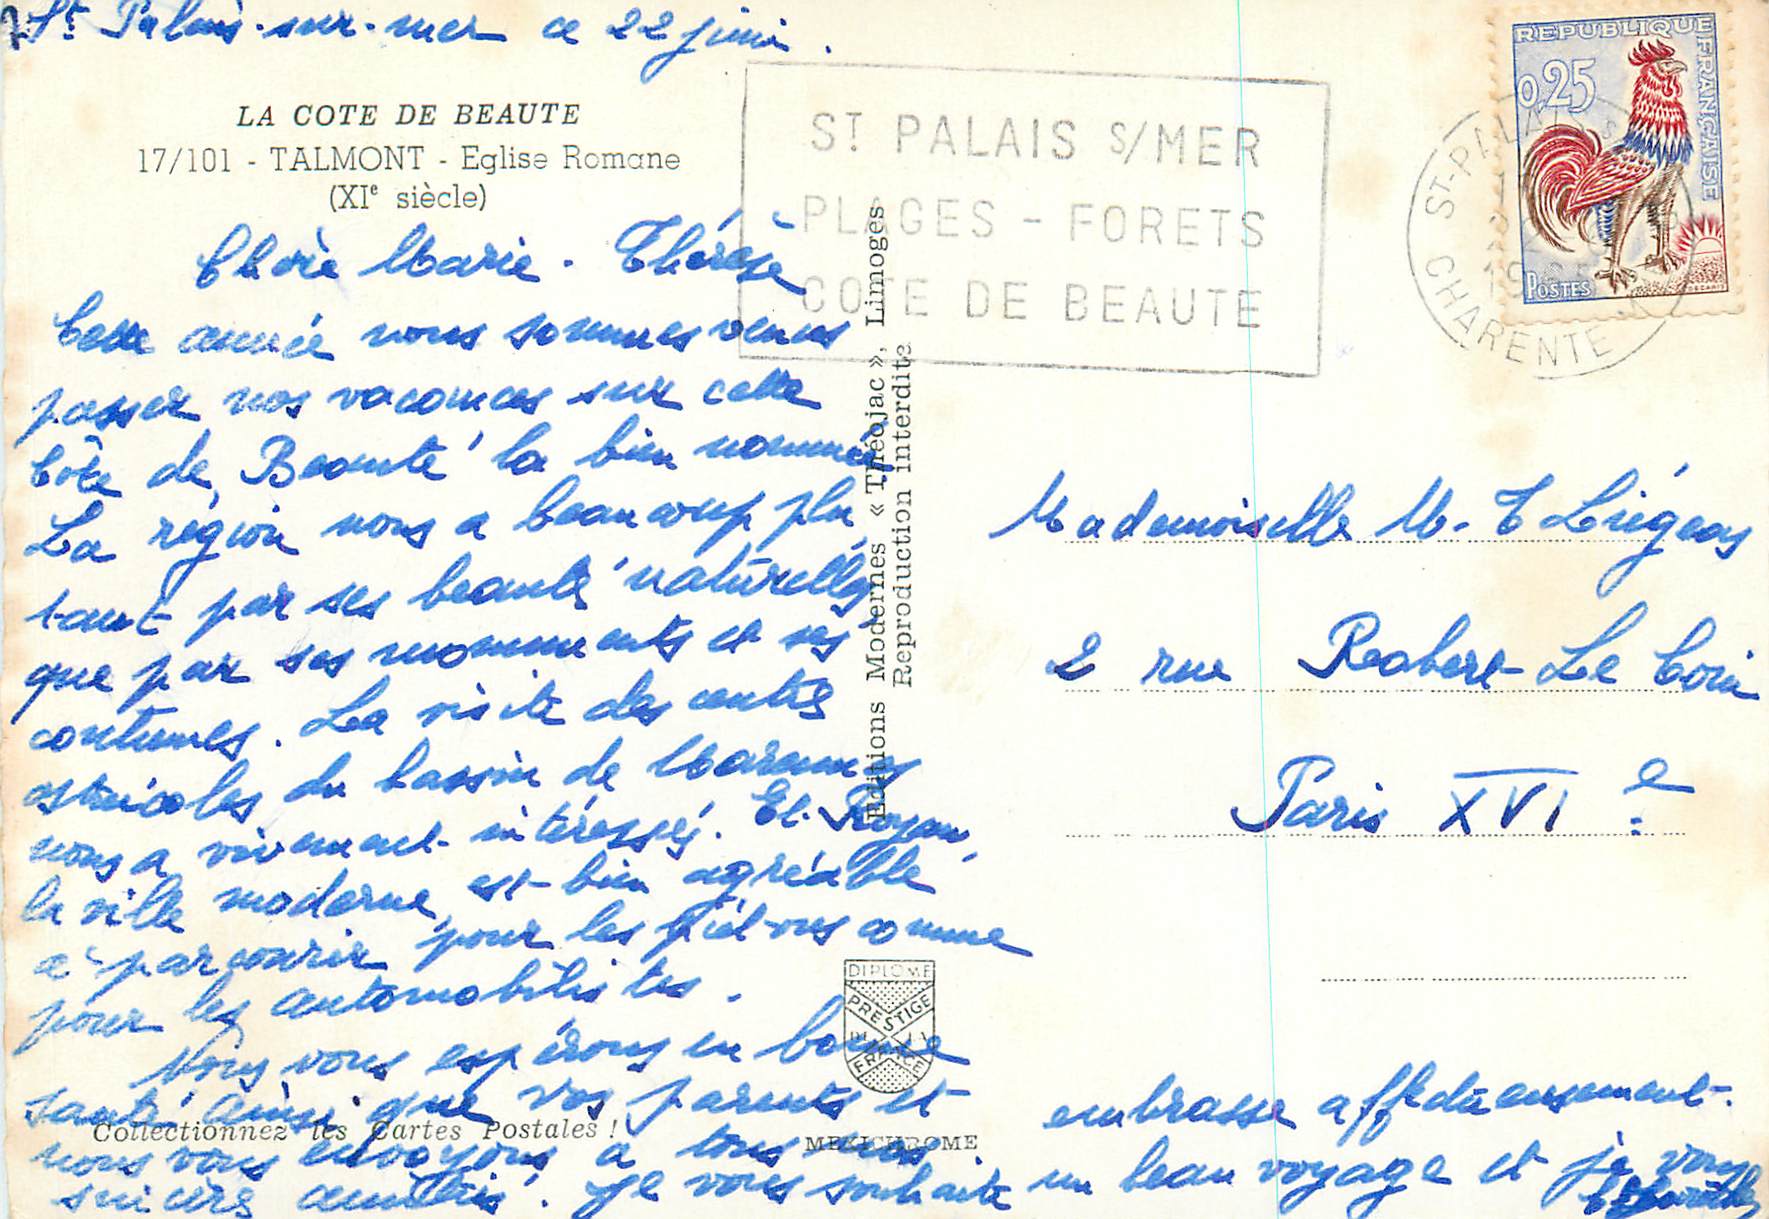 St Palais-sur-mer ce 22 juin.
LA COTE DE BEAUTE
17/101 - TALMONT - Eglise Romane
(XIe siècle)
Chère Marie-Thérèse
Cette année nous sommes venus
passer nos vacances sur cette
Côte de Beauté la bien nommée
La région nous a beaucoup plu
tant par ses beautés naturelles
que par ses monuments et ses
coutumes. La visite des centres
ostréicoles du bassin de Marennes
nous a vivement intéressés. Et Royan,
la ville moderne, est bien agréable
à parcourir pour les piétons comme
pour les automobilistes.
Nous vous espérons en bonne
santé ainsi que vos parents et
nous vous envoyons à tous nos
sincères amitiés. Je vous souhaite un beau voyage et je vous
embrasse affectueusement.
Collectionnez les Cartes Postales !
MEXICHROME
DIPLOME
PRESTIGE
DE LA
FRANCE
Editions Modernes « Théojac », Limoges
Reproduction interdite
ST PALAIS S/MER
PLAGES - FORETS
COTE DE BEAUTE
ST-PALAIS S
CHARENTE
REPUBLIQUE FRANÇAISE
0,25
POSTES
Mademoiselle M. T Liégeois
2 rue Robert Le Coin
Paris XVIe